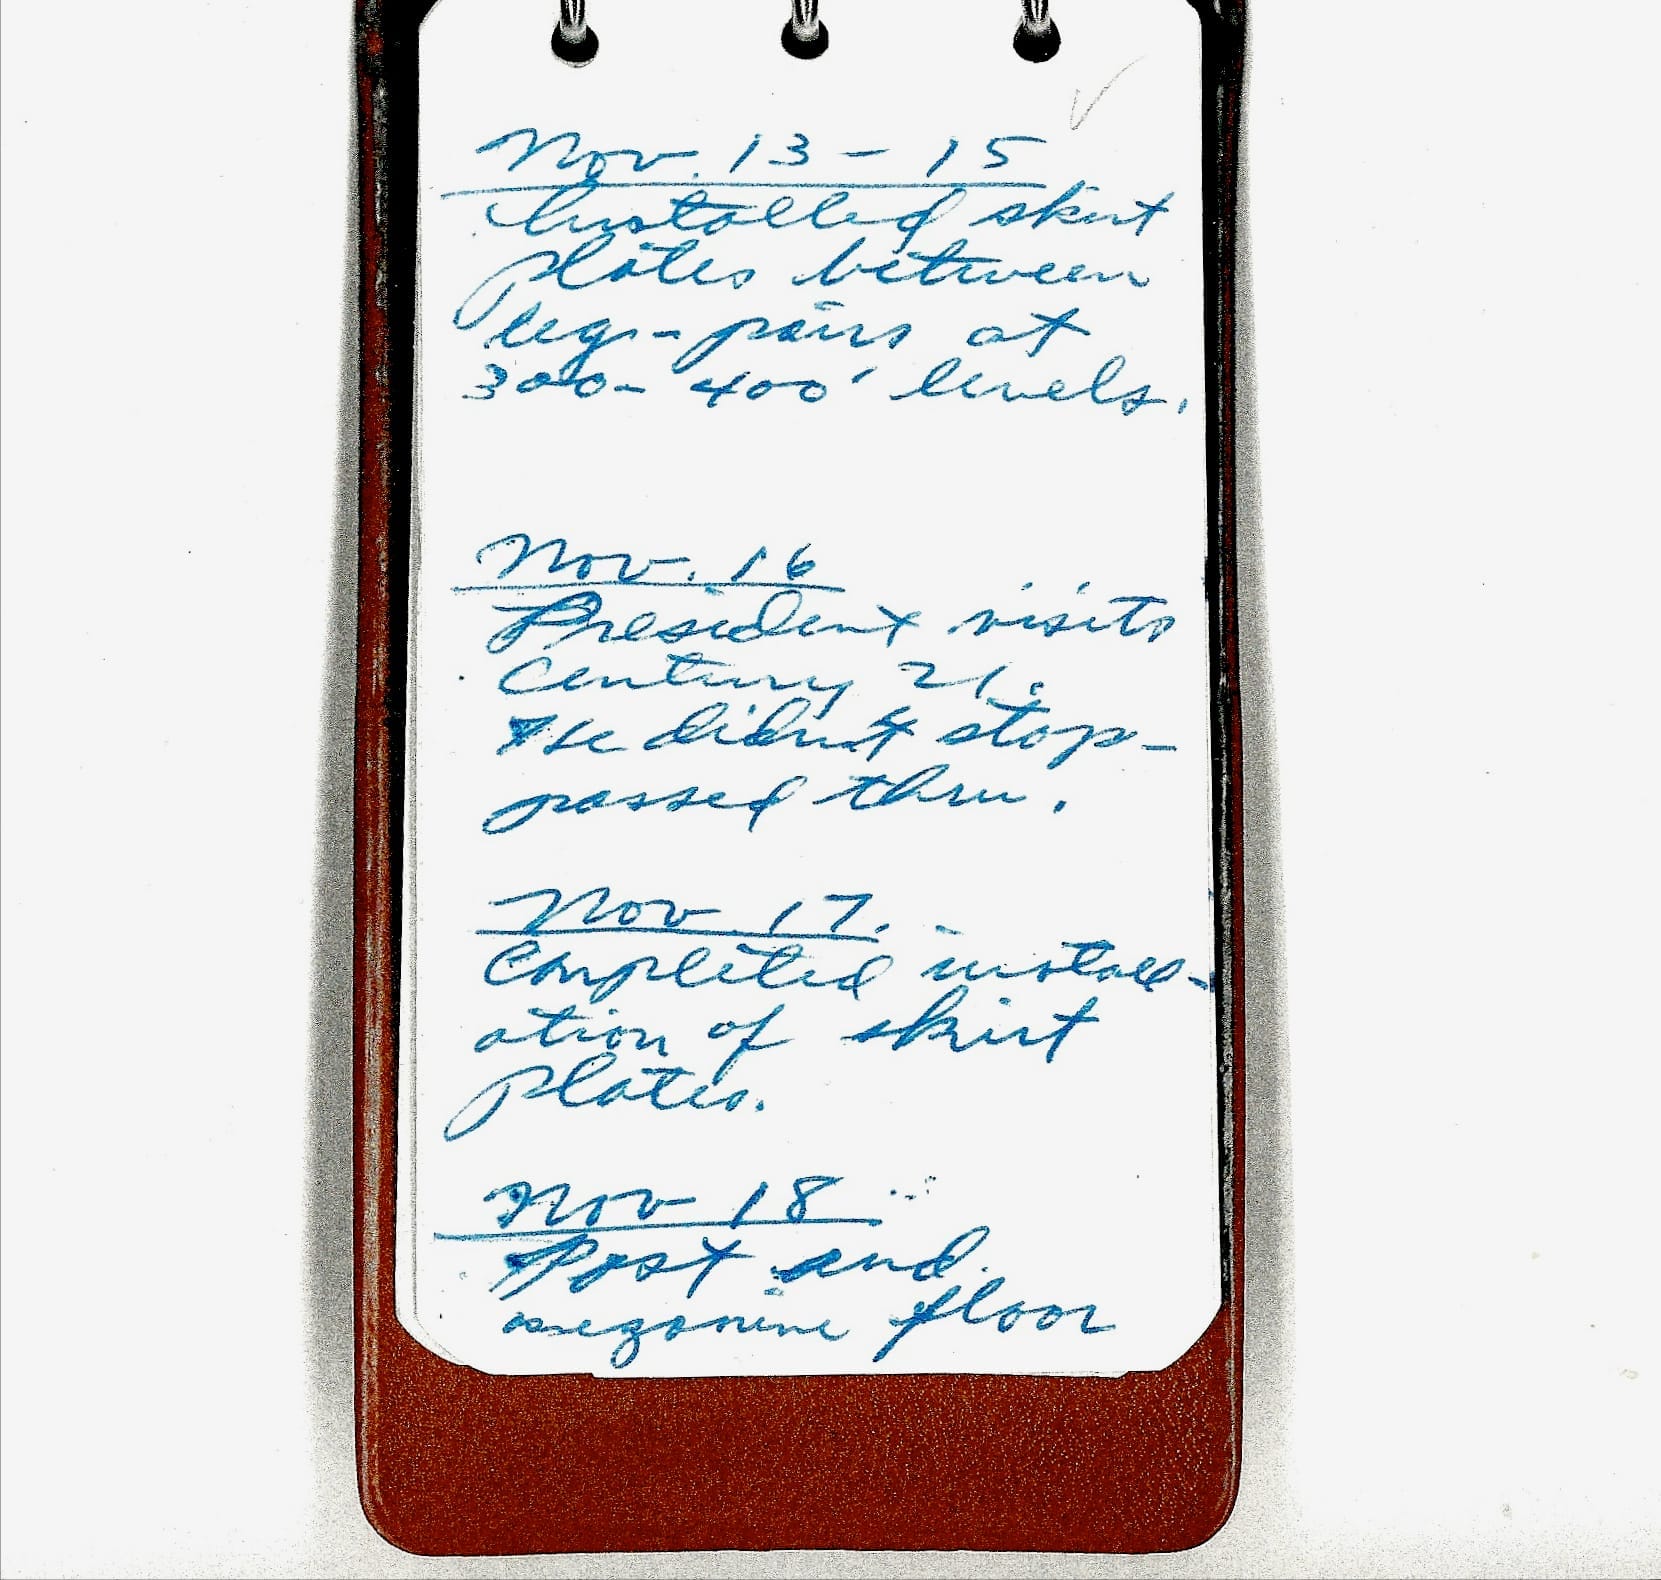 Nov. 13 - 15
Installed skirt
plates between
leg-pairs at
300-400' levels.
Nov. 16
President visits
Century 21.
He didn't stop-
passed thru.
Nov. 17.
Completed install-
ation of skirt
plates.
Nov 18
Post and
mezanine floor